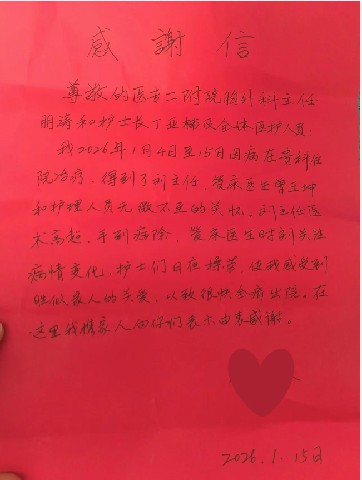 感謝信
尊敬的医专二附院胸外科主任
明涛和护士长丁亚娜及全体医护人员:
我2026年1月4日至15日因病在贵科住
院治疗,得到了刘主任、管床医生曾主坤
和护理人员无微不至的关怀。刘主任医
术高超,手到病除,管床医生时刻关注
病情变化,护士们日夜操劳,使我感受到
胜似家人的关爱,以致很快全病出院。在
这里我携家人向你们表示由衷感谢。
2026.1.15日